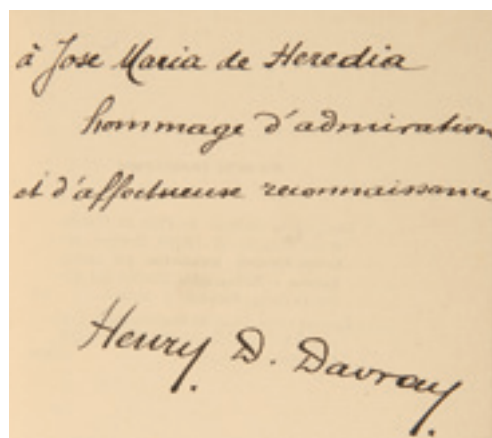 à Jose Maria de Heredia
hommage d'admiration
et d'affectueuse reconnaissance
Henry D. Davray.